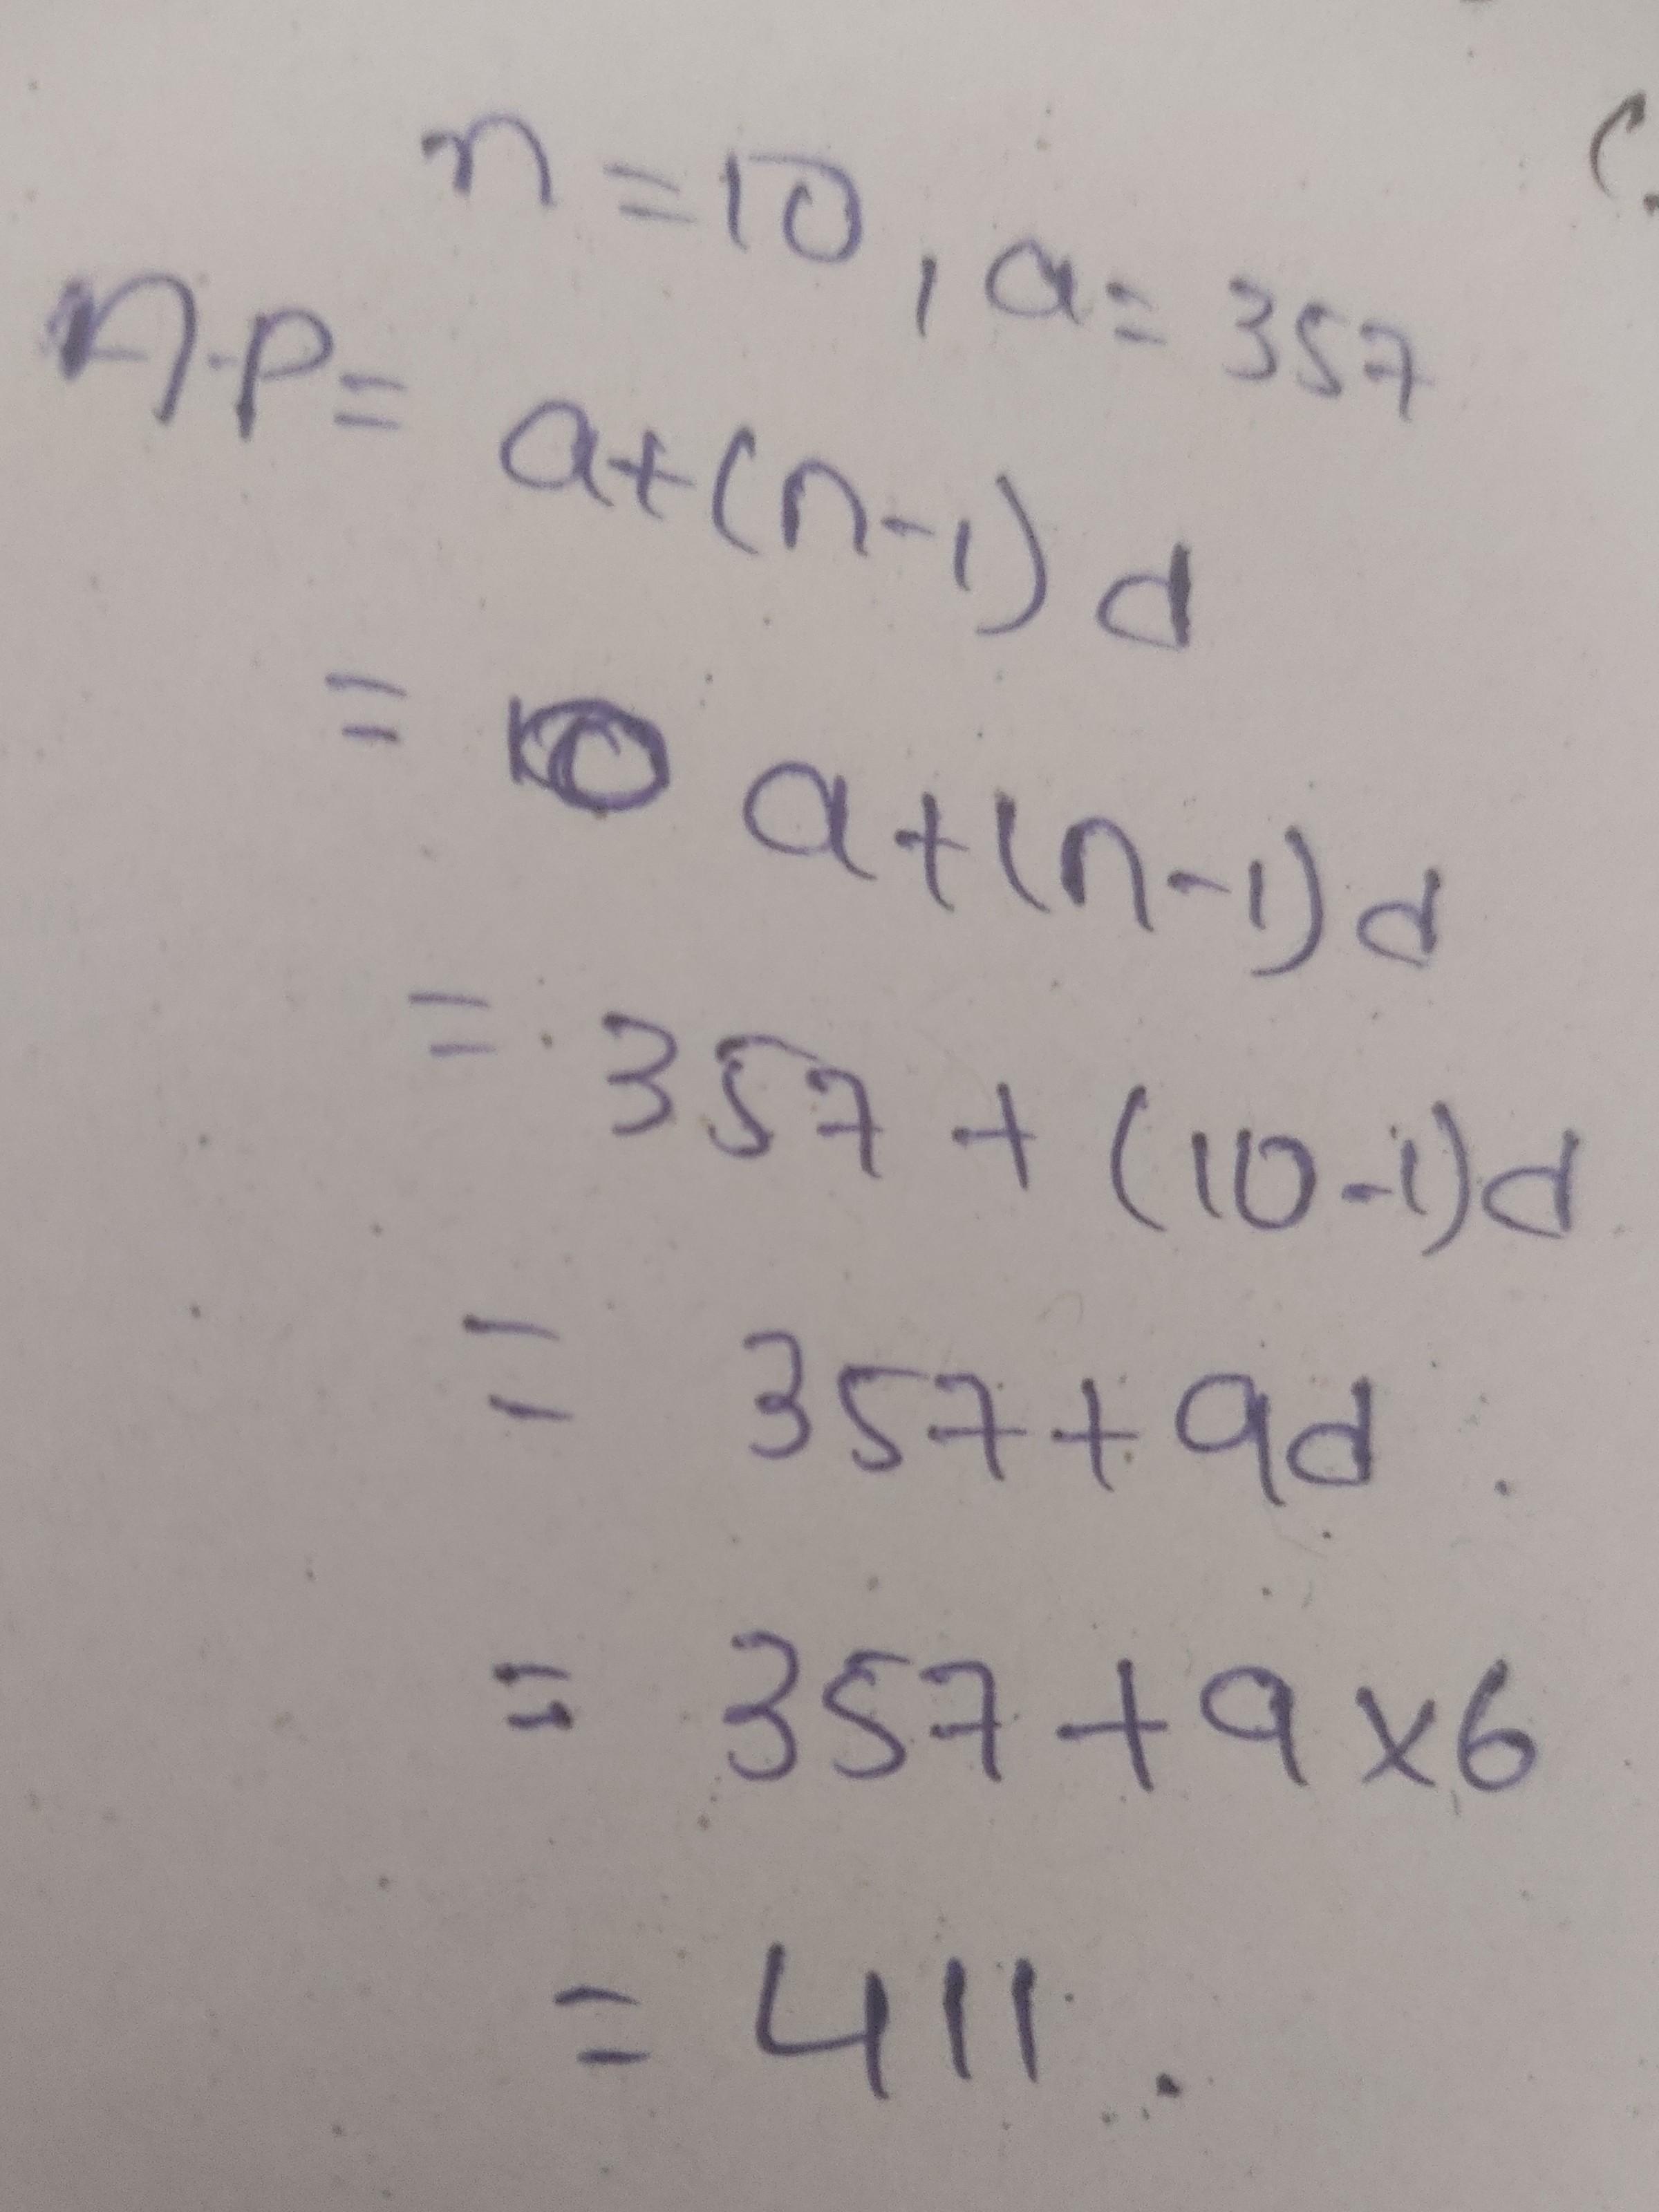 n = 10, a = 357
n.p = a+(n-1)d
= a+(n-1)d
= 357 + (10-1)d
= 357 + 9d
= 357 + 9 x 6
= 411.